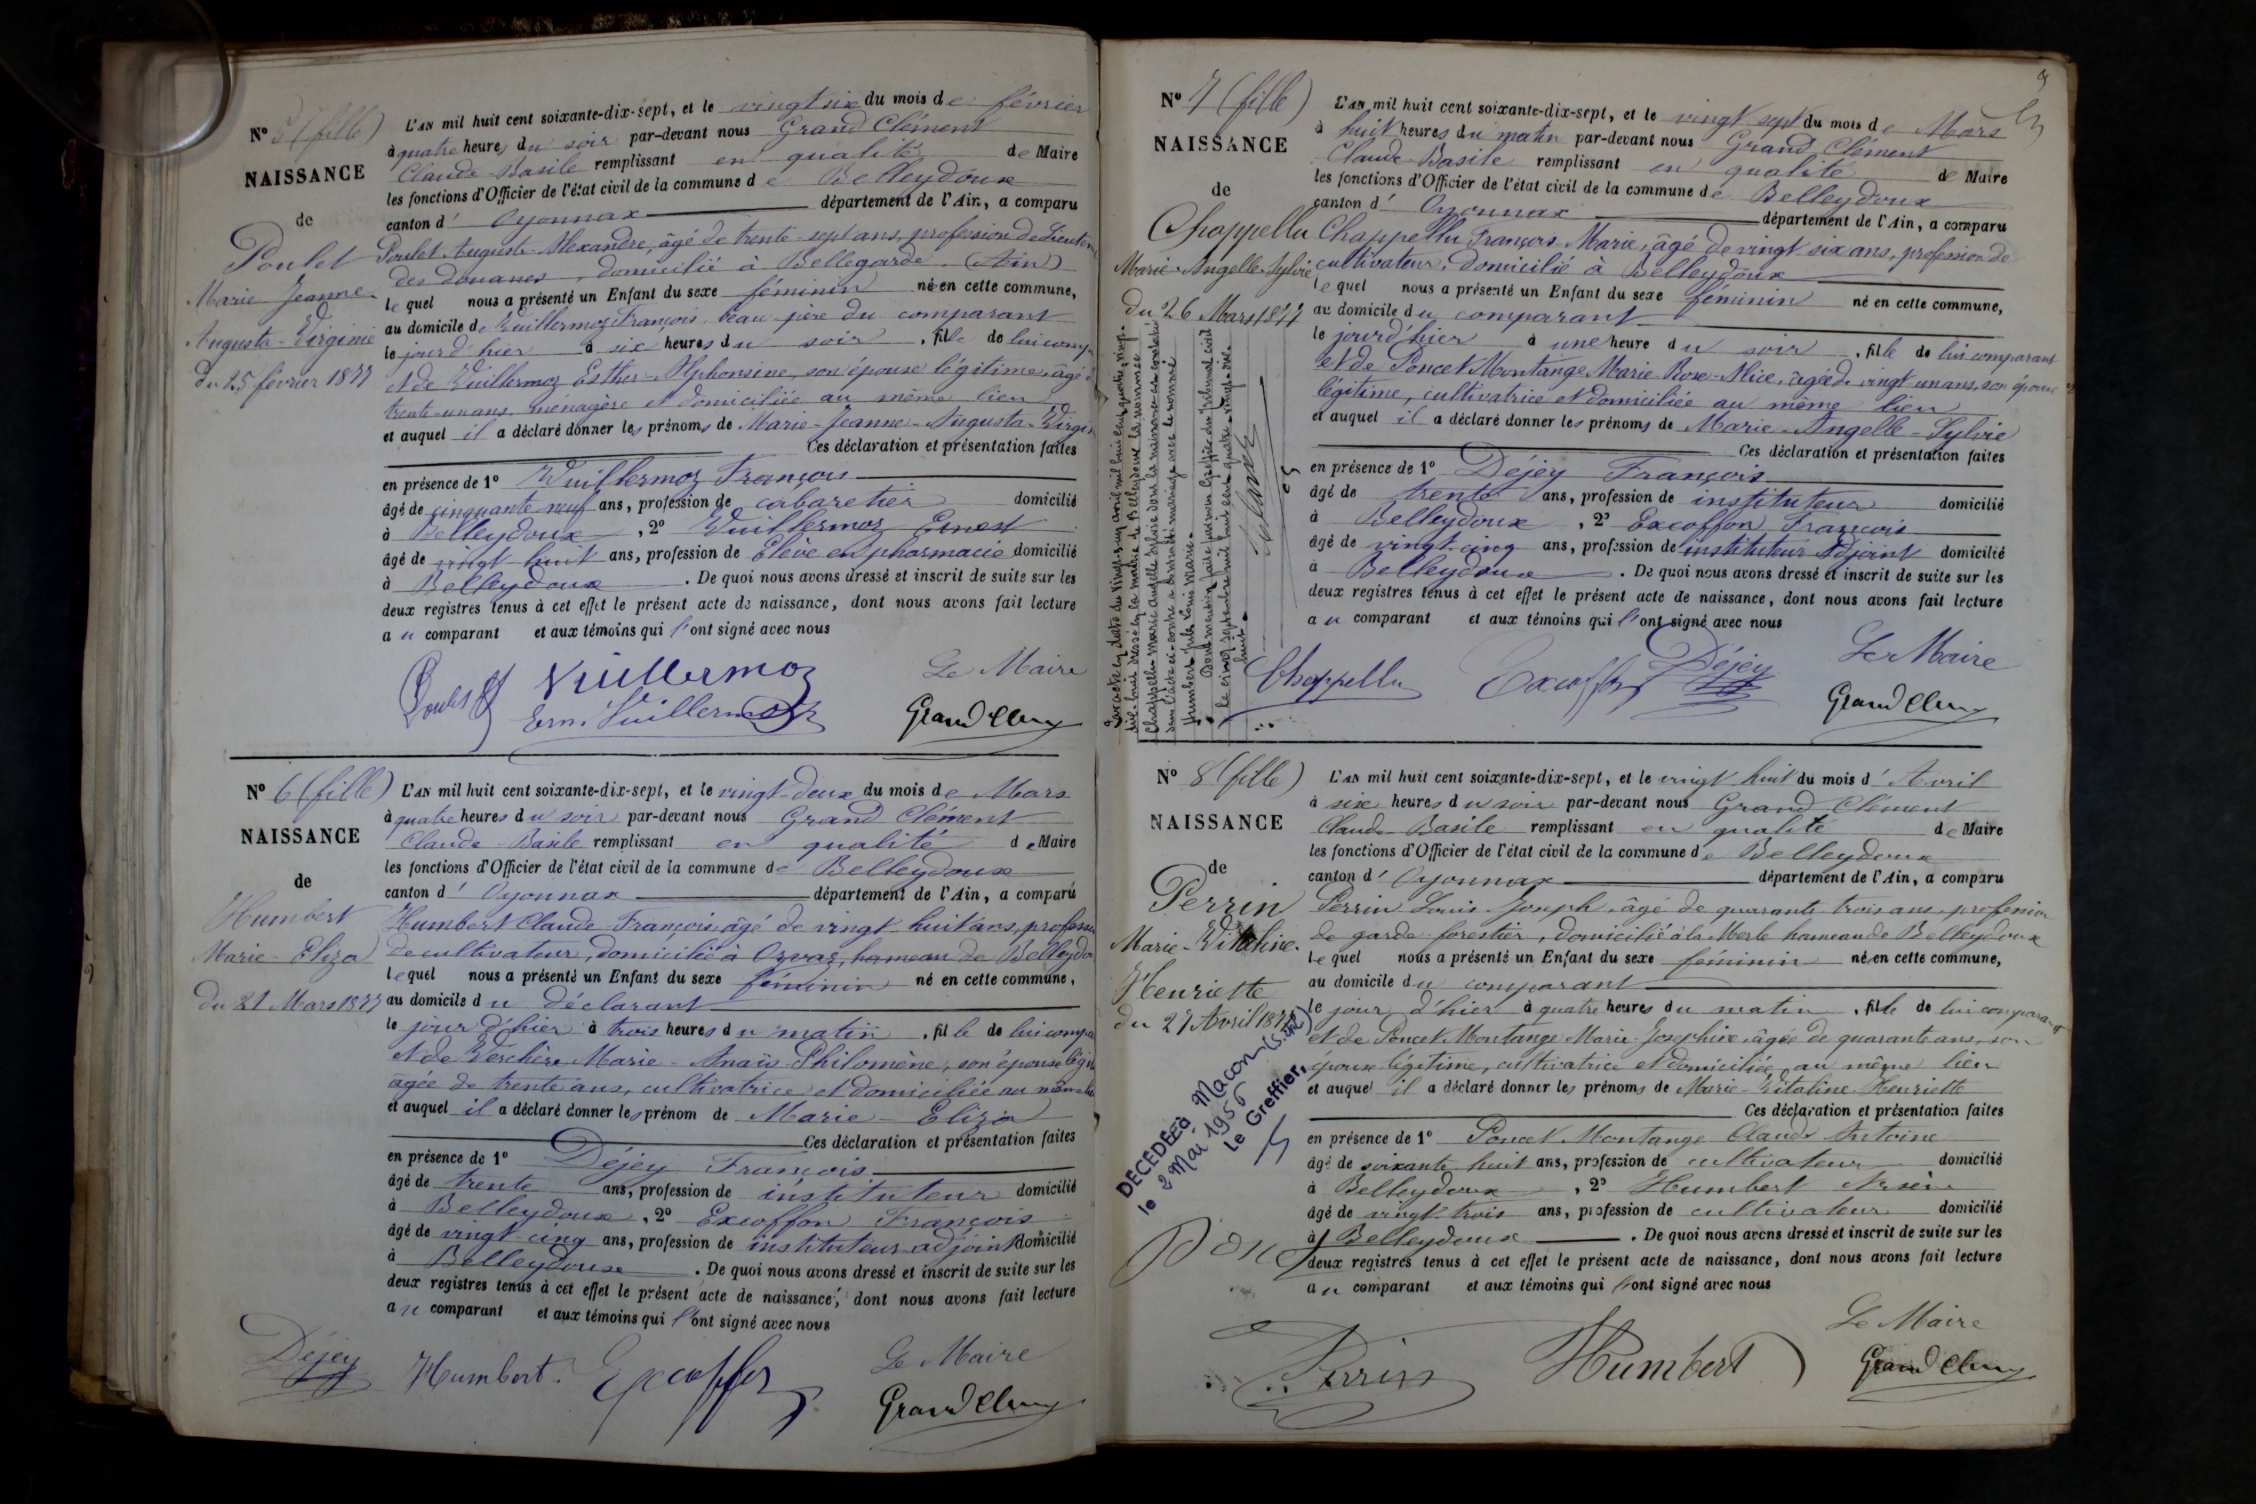 N° 5 (fille)
NAISSANCE
de
Poulet
Marie Jeanne
Augusta-Virginie
du 25 février 1877
L'AN mil huit cent soixante-dix-sept, et le vingt six du mois de février
à quatre heures du soir par-devant nous Grand Clément
Claude-Basile remplissant en qualité de Maire
les fonctions d'Officier de l'état civil de la commune de Belleydoux
canton d' Oyonnax département de l'Ain, a comparu
Poulet Auguste-Alexandre, âgé de trente-sept ans, profession de
des douanes, domicilié à Bellegarde (Ain)
lequel nous a présenté un Enfant du sexe féminin né en cette commune,
au domicile de Vuillermoz François beau-père du comparant
le jour d'hier à six heures du soir, fille de lui comp
et de Vuillermoz Esther-Alphonsine, son épouse légitime, âgé
trente-un ans, ménagère et domiciliée au même lieu
et auquel il a déclaré donner les prénoms de Marie-Jeanne-Augusta-Virgin
Ces déclaration et présentation faites
en présence de 1° Vuillermoz François
âgé de cinquante neuf ans, profession de cabaretier domicilié
à Belleydoux, 2° Vuillermoz Ernest
âgé de vingt-huit ans, profession de Elève en pharmacie domicilié
à Belleydoux. De quoi nous avons dressé et inscrit de suite sur les
deux registres tenus à cet effet le présent acte de naissance, dont nous avons fait lecture
au comparant et aux témoins qui l'ont signé avec nous
Poulet Vuillermoz Le Maire
Ern. Vuillermoz Grand Clem
N° 6 (fille)
NAISSANCE
de
Humbert
Marie-Eliza
du 21 Mars 1877
L'AN mil huit cent soixante-dix-sept, et le vingt-deux du mois de Mars
à quatre heures du soir par-devant nous Grand Clément
Claude-Basile remplissant en qualité de Maire
les fonctions d'Officier de l'état civil de la commune de Belleydoux
canton d' Oyonnax département de l'Ain, a comparu
Humbert Claude-François, âgé de vingt huit ans, profession
de cultivateur, domicilié à Orvaz, hameau de Belleydo
lequel nous a présenté un Enfant du sexe féminin né en cette commune,
au domicile du déclarant
le jour d'hier à trois heures du matin, fille de lui compa
et de Verchère Marie-Anaïs-Philomène, son épouse légi
âgée de trente ans, cultivatrice et domiciliée au même
et auquel il a déclaré donner les prénom de Marie-Eliza
Ces déclaration et présentation faites
en présence de 1° Déjey François
âgé de trente ans, profession de instituteur domicilié
à Belleydoux, 2° Excoffon François
âgé de vingt-cinq ans, profession de instituteur adjoint domicilié
à Belleydoux. De quoi nous avons dressé et inscrit de suite sur les
deux registres tenus à cet effet le présent acte de naissance, dont nous avons fait lecture
au comparant et aux témoins qui l'ont signé avec nous
Déjey Humbert Excoffon Le Maire
Grand Clem
N° 7 (fille)
NAISSANCE
de
Chappellu
Marie-Angelle-Sylvie
du 26 Mars 1877
L'AN mil huit cent soixante-dix-sept, et le vingt sept du mois de Mars
à huit heures du matin par-devant nous Grand Clément
Claude-Basile remplissant en qualité de Maire
les fonctions d'Officier de l'état civil de la commune de Belleydoux
canton d' Oyonnax département de l'Ain, a comparu
Chappellu François-Marie, âgé de vingt six ans, profession de
cultivateur, domicilié à Belleydoux
lequel nous a présenté un Enfant du sexe féminin né en cette commune,
au domicile du comparant
le jour d'hier à une heure du soir, fille de lui comparant
et de Poncet Montange Marie-Rose-Alice, âgée de vingt un ans, son épouse
légitime, cultivatrice et domiciliée au même lieu
et auquel il a déclaré donner les prénoms de Marie-Angelle-Sylvie
Ces déclaration et présentation faites
en présence de 1° Déjey François
âgé de trente ans, profession de instituteur domicilié
à Belleydoux, 2° Excoffon François
âgé de vingt-cinq ans, profession de instituteur Adjoint domicilié
à Belleydoux. De quoi nous avons dressé et inscrit de suite sur les
deux registres tenus à cet effet le présent acte de naissance, dont nous avons fait lecture
au comparant et aux témoins qui l'ont signé avec nous
Par acte en date du vingt-un avril mil huit cent quatre-vingt-
dix-huit dressé en la mairie de Belleydoux la nommée
Chappellu marie angelle sylvie dont la naissance est constatée
dans l'acte ci-contre a contracté mariage avec le nommé
Humbert jules Louis marie.
Dont mention faite par nous Greffier du Tribunal civil
le cinq septembre mil huit cent quatre-vingt-dix-
huit.
Chappellu Excoffon Déjey Le Maire
Grand Clem
N° 8 (fille)
NAISSANCE
de
Perrin
Marie-Vitaline-
Henriette
du 27 Avril 1877
L'AN mil huit cent soixante-dix-sept, et le vingt huit du mois d' Avril
à six heures du soir par-devant nous Grand Clément
Claude-Basile remplissant en qualité de Maire
les fonctions d'Officier de l'état civil de la commune de Belleydoux
canton d' Oyonnax département de l'Ain, a comparu
Perrin Louis-Joseph, âgé de quarante trois ans, profession
de garde-forestier, domicilié à la Merle hameau de Belleydoux
lequel nous a présenté un Enfant du sexe féminin né en cette commune,
au domicile du comparant
le jour d'hier à quatre heures du matin, fille de lui comparant
et de Poncet Montange Marie-Josephine, âgée de quarante ans, son
épouse légitime, cultivatrice et domiciliée au même lieu
et auquel il a déclaré donner les prénoms de Marie-Vitaline-Henriette
Ces déclaration et présentation faites
en présence de 1° Poncet Montange Claude Antoine
âgé de soixante huit ans, profession de cultivateur domicilié
à Belleydoux, 2° Humbert Arsène
âgé de vingt-trois ans, profession de cultivateur domicilié
à Belleydoux. De quoi nous avons dressé et inscrit de suite sur les
deux registres tenus à cet effet le présent acte de naissance, dont nous avons fait lecture
au comparant et aux témoins qui l'ont signé avec nous
DECEDEE à Macon (S. et L)
le 2 Mai 1956
Le Greffier,
Perrin Humbert Le Maire
Grand Clem